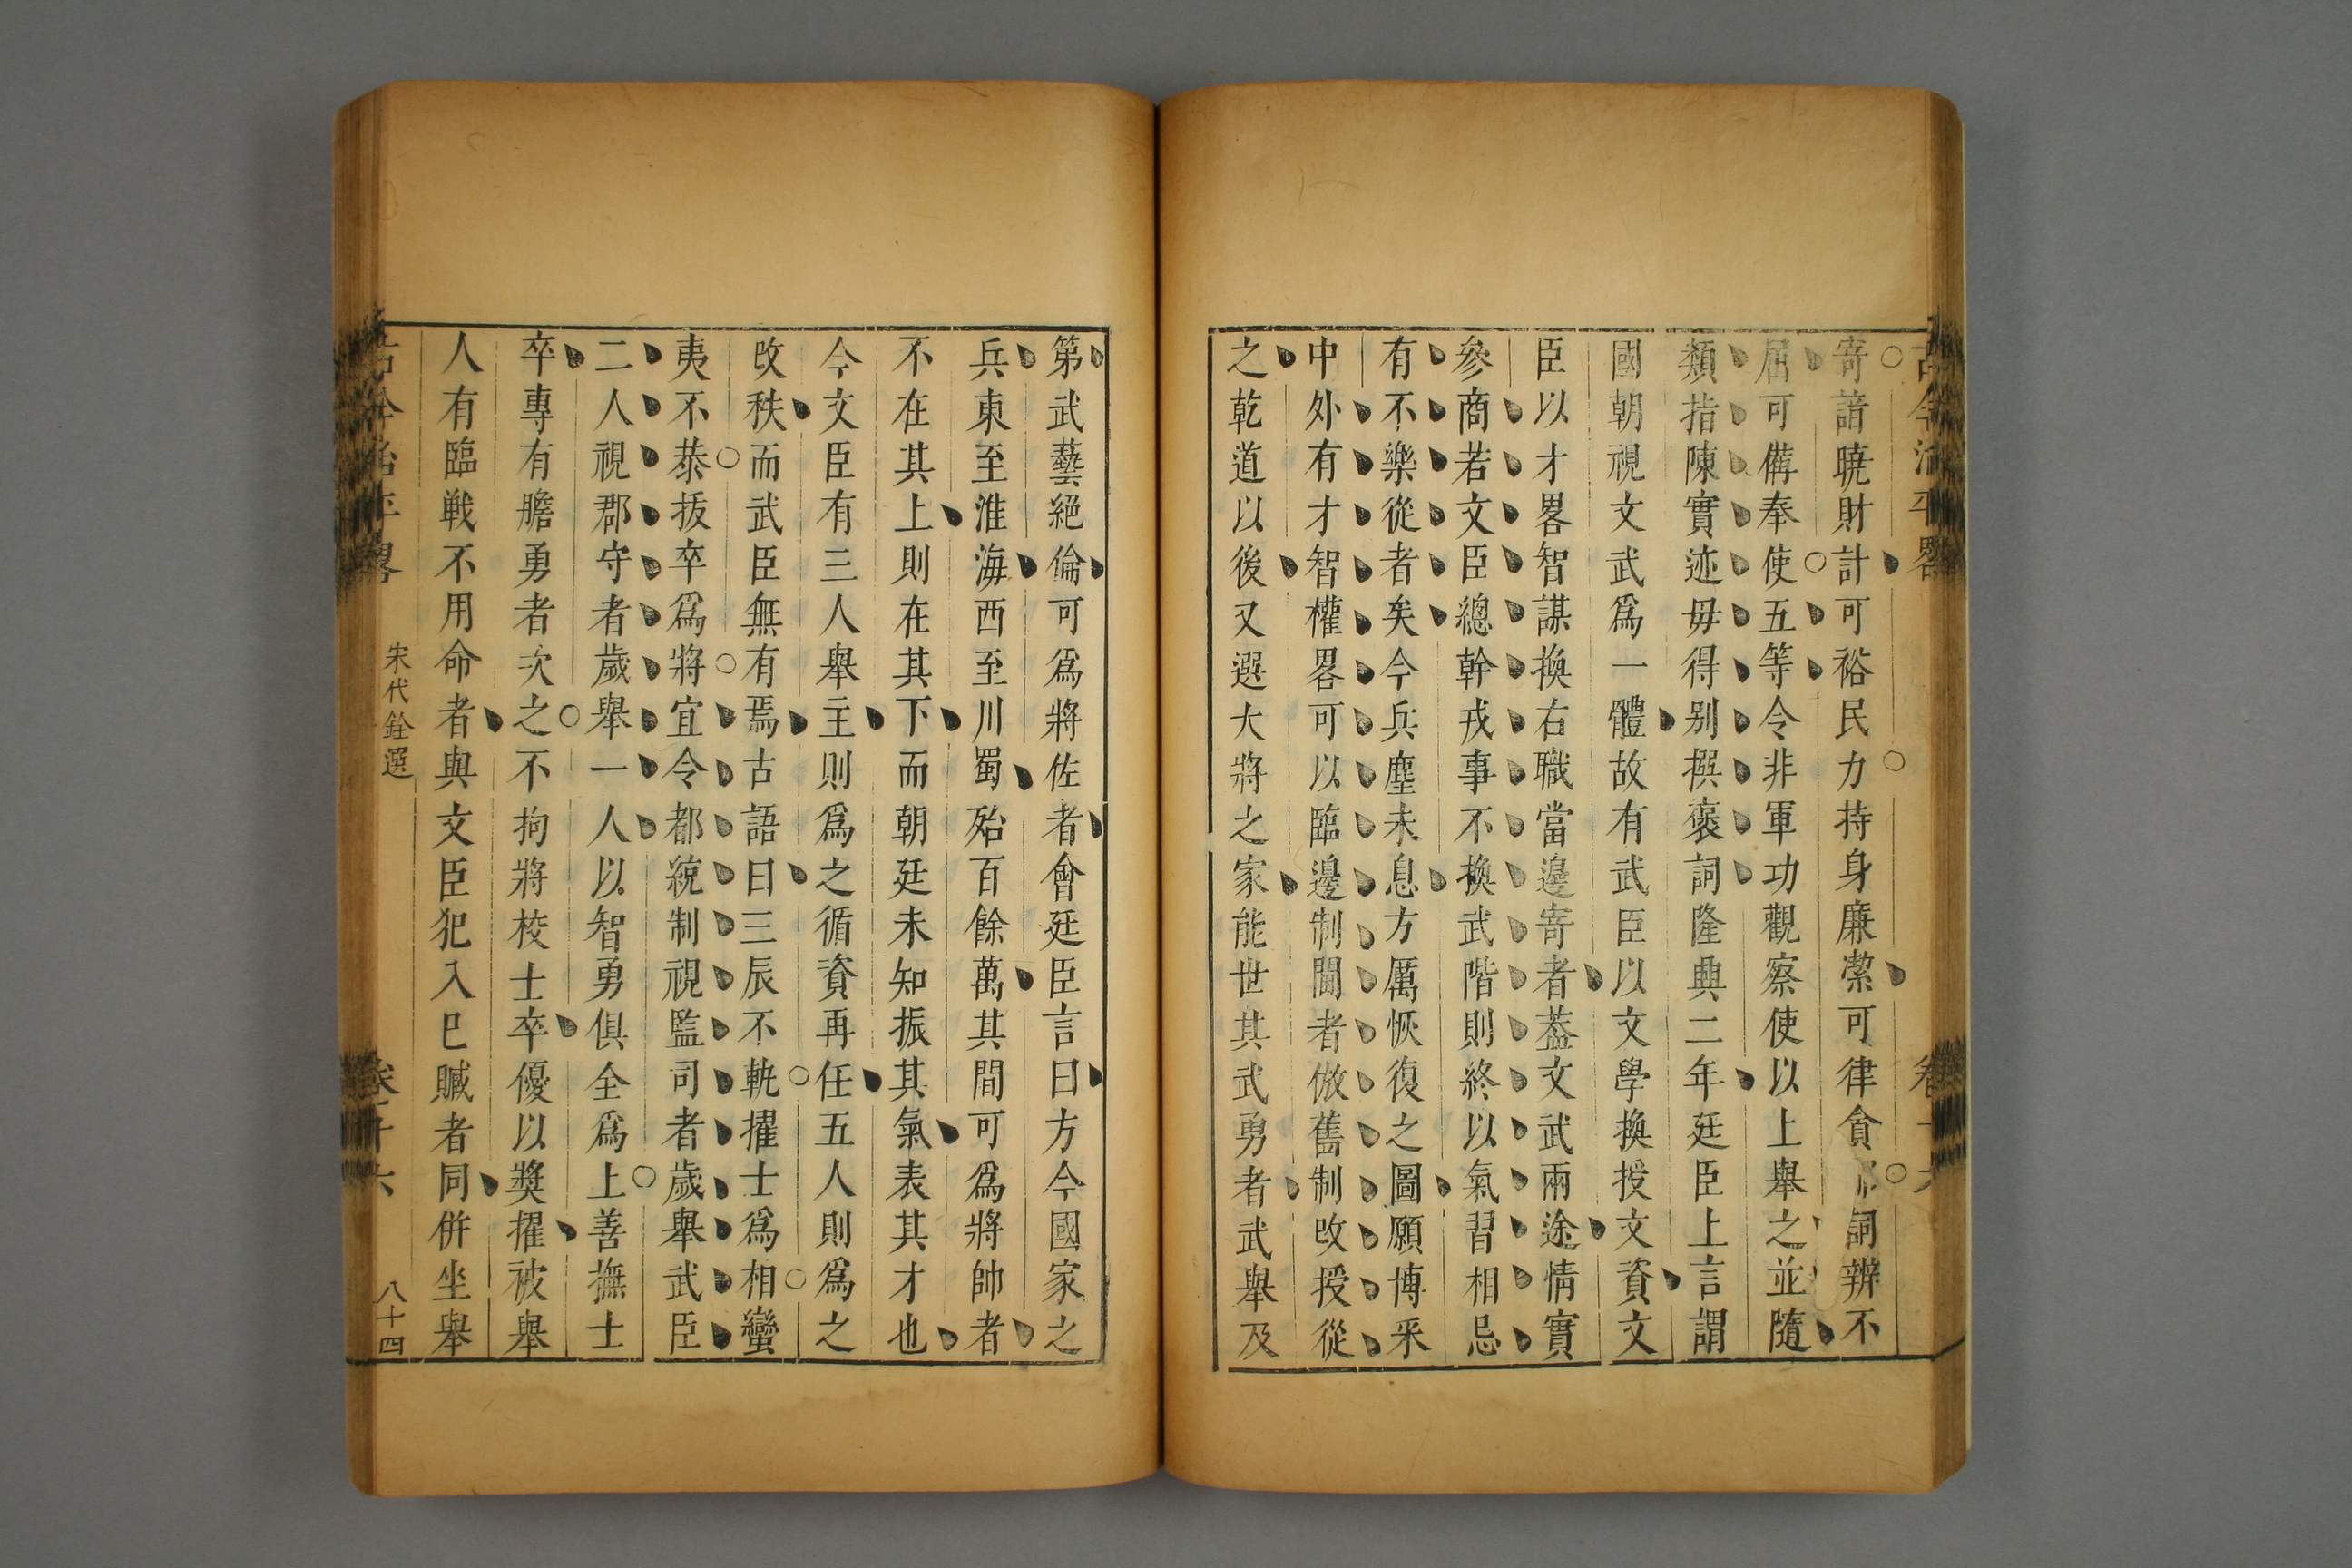 寄諳曉財計可裕民力持身廉潔可律貪詞辨不
屈可備奉使五等令非軍功觀察使以上舉之並隨
類指陳實迹毋得别撰褒詞隆興二年廷臣上言謂
國朝視文武爲一體故有武臣以文學換授文資文
臣以才畧智謀換右職當邊寄者葢文武兩途情實
參商若文臣總幹戎事不換武階則終以氣習相忌
有不樂從者矣今兵塵未息方厲恢復之圖願博采
中外有才智權畧可以臨邊制閫者倣舊制改授從
之乾道以後又選大將之家能世其武勇者武舉及
第武藝絕倫可爲將佐者會廷臣言曰方今國家之
兵東至淮海西至川蜀殆百餘萬其間可爲將帥者
不在其上則在其下而朝廷未知振其氣表其才也
今文臣有三人舉主則爲之循資再任五人則爲之
改秩而武臣無有焉古語曰三辰不軌擢士爲相蠻
夷不恭拔卒爲將宜令都統制視監司者歲舉武臣
二人視郡守者歲舉一人以智勇俱全爲上善撫士
卒專有膽勇者次之不拘將校士卒優以奬擢被舉
人有臨戰不用命者與文臣犯入已贓者同併坐舉
古今治平畧
宋代銓選
卷十六
八十四